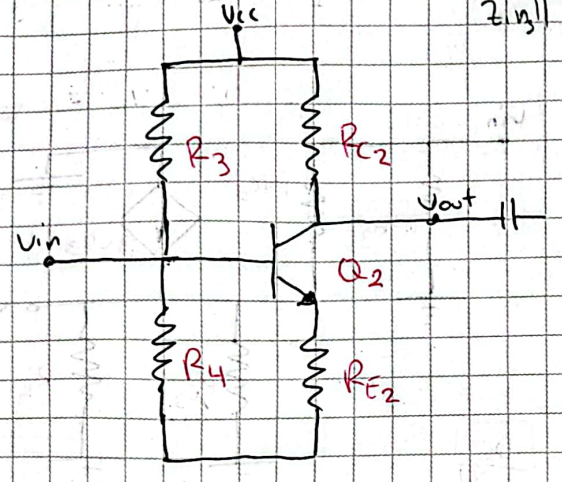 Vcc
Zin,11
R3
RC2
Vout
Vin
Q2
R4
RE2